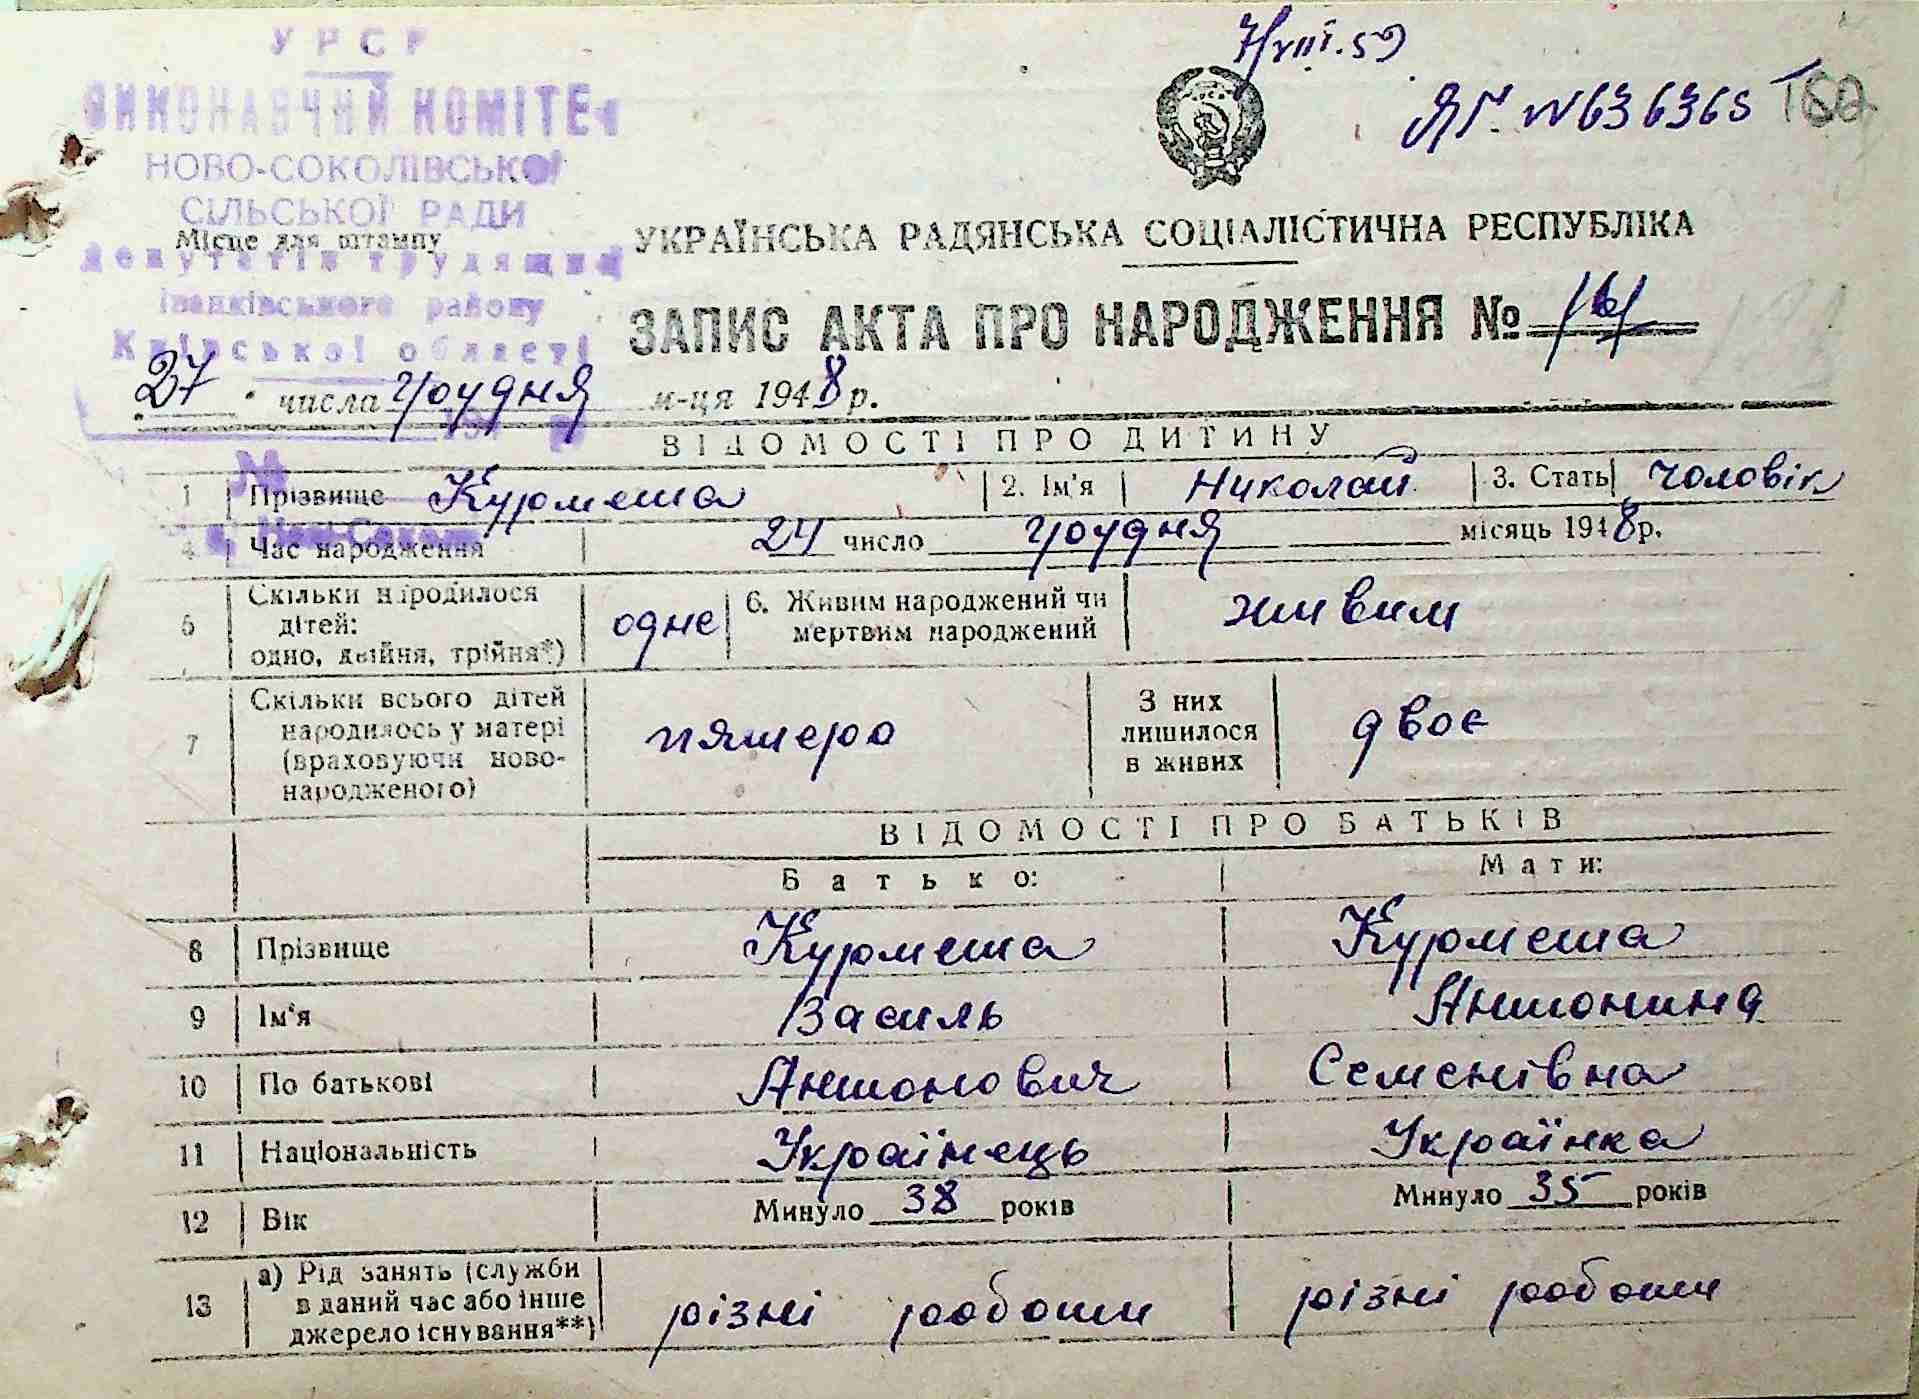 7/VIII.59
ЯГ №636365
УРСР
ВИКОНАВЧИЙ КОМІТЕТ
НОВО-СОКОЛІВСЬКОЇ
СІЛЬСЬКОЇ РАДИ
Місце для штампу
депутатів трудящих
Іванківського району
Київської області
УКРАЇНСЬКА РАДЯНСЬКА СОЦІАЛІСТИЧНА РЕСПУБЛІКА
ЗАПИС АКТА ПРО НАРОДЖЕННЯ №
27 числа грудня м-ця 1948 р.
ВІДОМОСТІ ПРО ДИТИНУ
№
1 Прізвище Курмеша 2. Ім'я Николай 3. Стать чоловік
4 Час народження 24 число грудня місяць 1948 р.
5 Скільки народилося дітей: одно, двійня, трійня*) одне 6. Живим народжений чи мертвим народжений живим
7 Скільки всього дітей народилось у матері (враховуючи новонародженого) пятеро З них лишилося в живих двоє
ВІДОМОСТІ ПРО БАТЬКІВ
Батько: Мати:
8 Прізвище Курмеша Курмеша
9 Ім'я Василь Антонина
10 По батькові Антонович Семенівна
11 Національність Українець Українка
12 Вік Минуло 38 років Минуло 35 років
13 а) Рід занять (служби в даний час або інше джерело існування**) різні роботи різні роботи